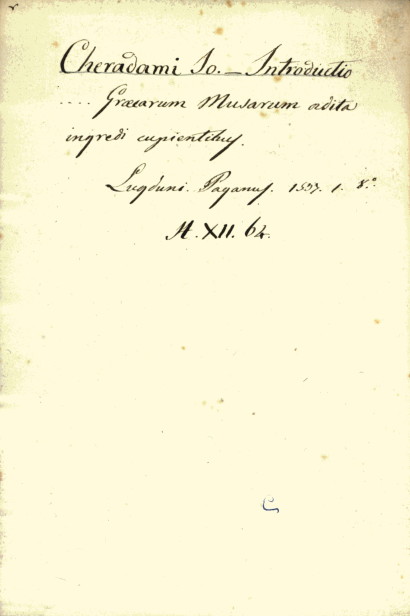 Cheradami Io. — Introductio
.... Græcarum Musarum adita
ingredi cupientibus.
Lugduni. Paganus. 1537. 1. 8.º
H. XII. 64.
C